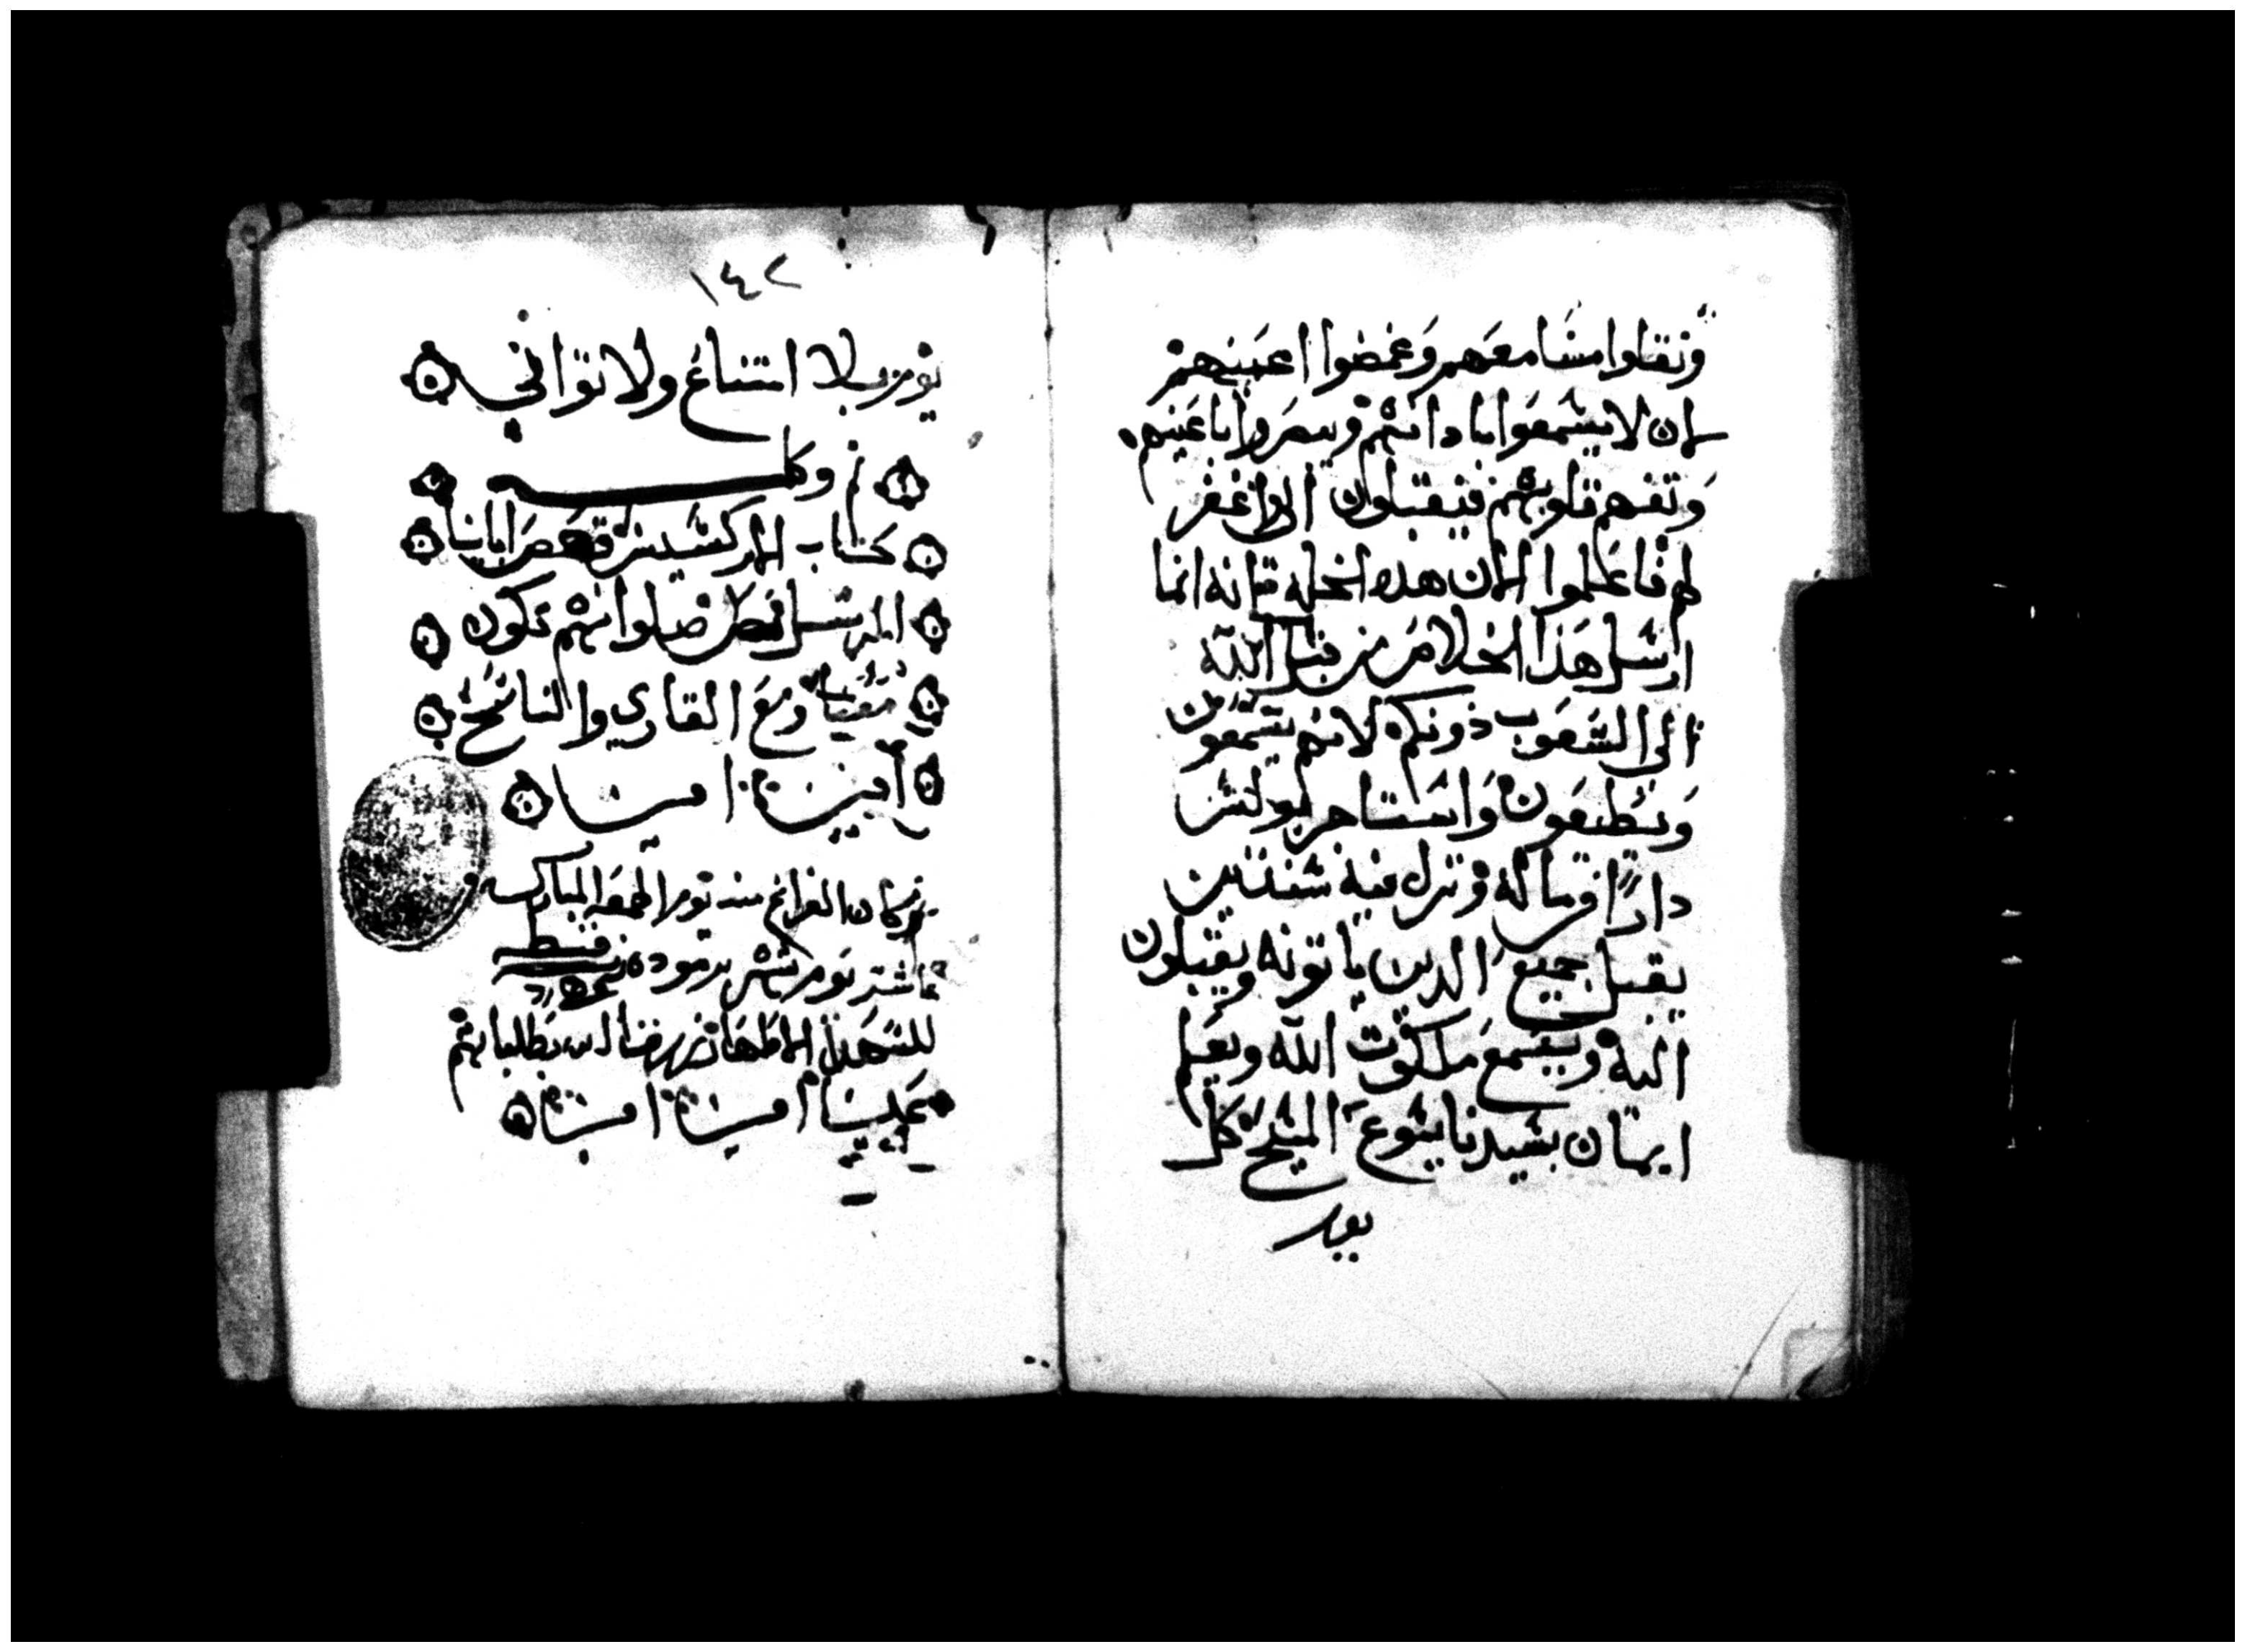 وثقلوا مسامعهم وغمضوا اعينهم
لان لا يسمعوا باداانهم ويبصروا باعينهم
وتفهم قلوبهم فيقبلون الى اغفر
لهم فاعلموا الان هده انه انما
ارسل هذا الخلاص من قبل الله
الى الشعوب دونكم لانهم يسمعون
ويطيعون واستاجر بولس
دارًا من ماله ونزل فيه سنتين
يقبل جميع الدين ياتونه ويقبلون
اليه ويسمع ملكوت الله ويعلم
ايمان بسيدنا يسوع المسيح كل
يوم
١٤٢
يوم بلا امتناع ولا توانى
تم وكل
كتاب الابركسيس قصص ابابنا
الرسل صلواتهم تكون
معنا ومع القاري والناسخ
امين امين
وكان الفراغ منه يوم الجمعه المبارك
عاشر يوم شهر برموده
للشهدا الاطهار بطلباتهم
امين امين